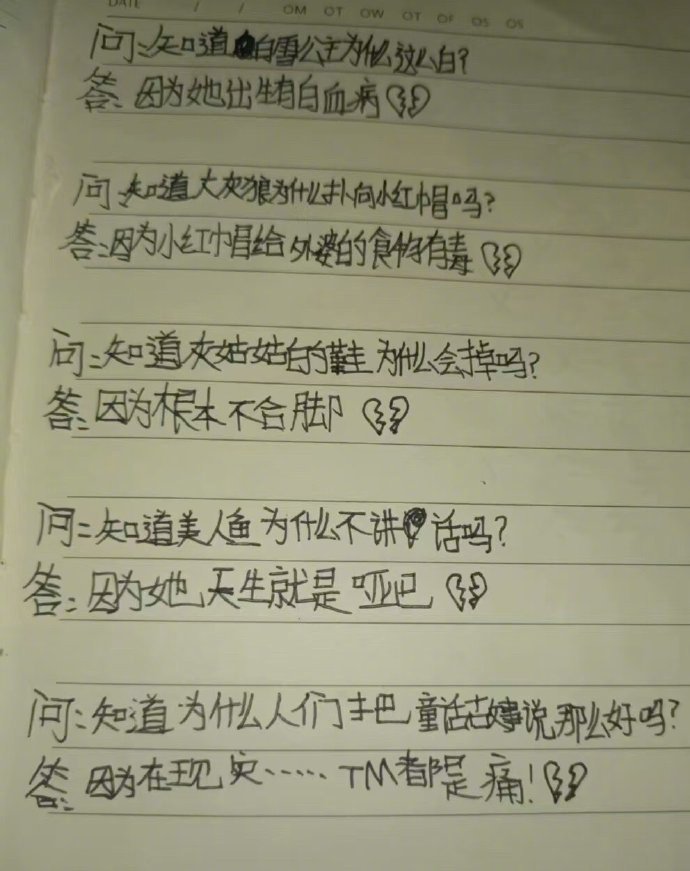 DATE / / OM OT OW OT OF OS OS
问:知道白雪公主为什么这么白?
答:因为她出生有白血病
问:知道大灰狼为什么扑向小红帽吗?
答:因为小红帽给外婆的食物有毒
问:知道灰姑姑的鞋为什么会掉吗?
答:因为根本不合脚
问:知道美人鱼为什么不讲话吗?
答:因为她天生就是哑巴
问:知道为什么人们把童话故事说那么好吗?
答:因为在现实……TM都是痛!